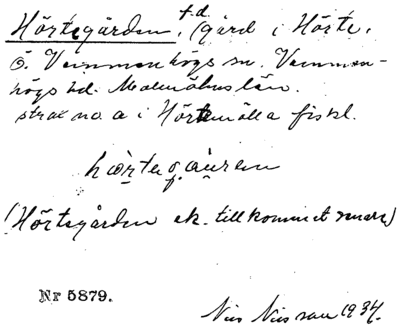 Hörtegården, f.d. gård i Hörte,
Ö. Vemmenhögs sn. Vemmen-
högs hd. Malmöhus län.
strax no. a i Hörtemölla fiskl.
(Hörtegården ek. tillkommet senare)
Nr 5879.
Nils Nilsson 1934.